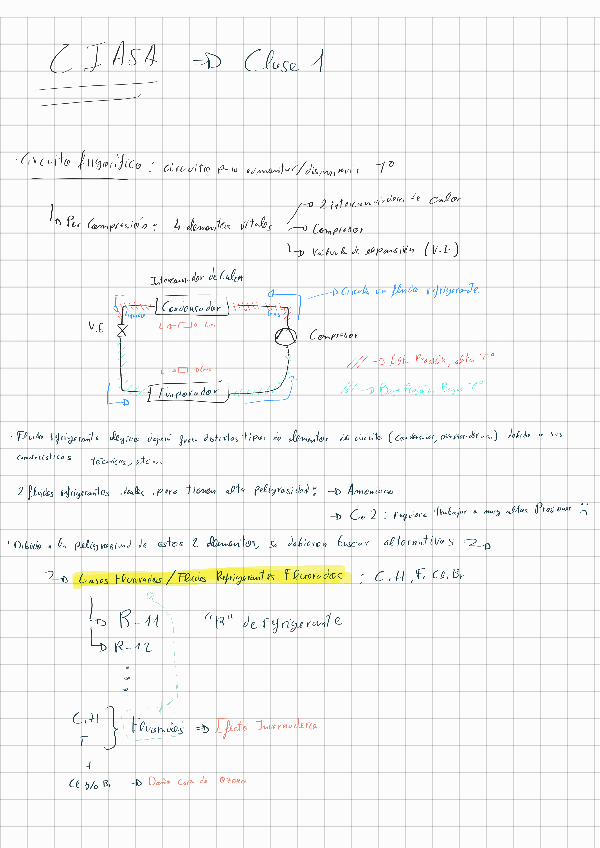 CIASA → Clase 1
· Circuito frigorífico : circuito para aumentar/disminuir Tº
↳ Por Compresión : 4 elementos vitales → 2 intercambiadores de calor
→ Compresor
↳ Válvula de expansión (V.E)
Intercambiador de Calor
→ Circula un fluido refrigerante
Líquido Condensador Gas
V.E Compresor
→ Alta Presión, alta Tº
→ Baja Presión, Baja Tº
Evaporador
· Fluido refrigerante elegido distintos tipos de elementos de circuito (condensador, ) debido a sus
características técnicas, etc...
2 fluidos refrigerantes ideales, pero tienen alta peligrosidad: → Amoniaco
→ CO2 : requiere trabajar a muy altas Presiones
· Debido a la peligrosidad de estos 2 elementos, se debieron buscar alternativas →
→ Gases Fluorados / Fluidos Refrigerantes Fluorados : C, H, F, Cl, Br
→ R-11 "R" de refrigerante
↳ R-12
C, H
F } Fluorados ⇒ Efecto Invernadero
+
Cl y/o Br → Daño capa de Ozono